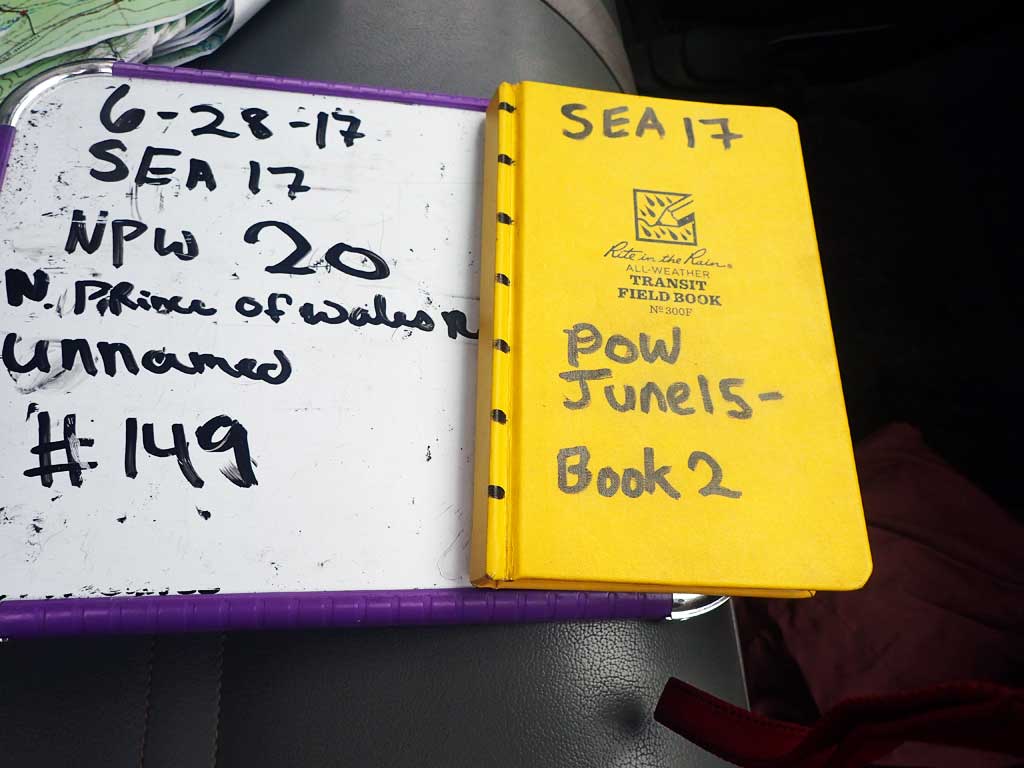 6-28-17
SEA 17
NPW 20
N. Prince of Wales
Unnamed
#149
SEA 17
Rite in the Rain®
ALL-WEATHER
TRANSIT
FIELD BOOK
Nº 300F
POW
June15-
Book 2